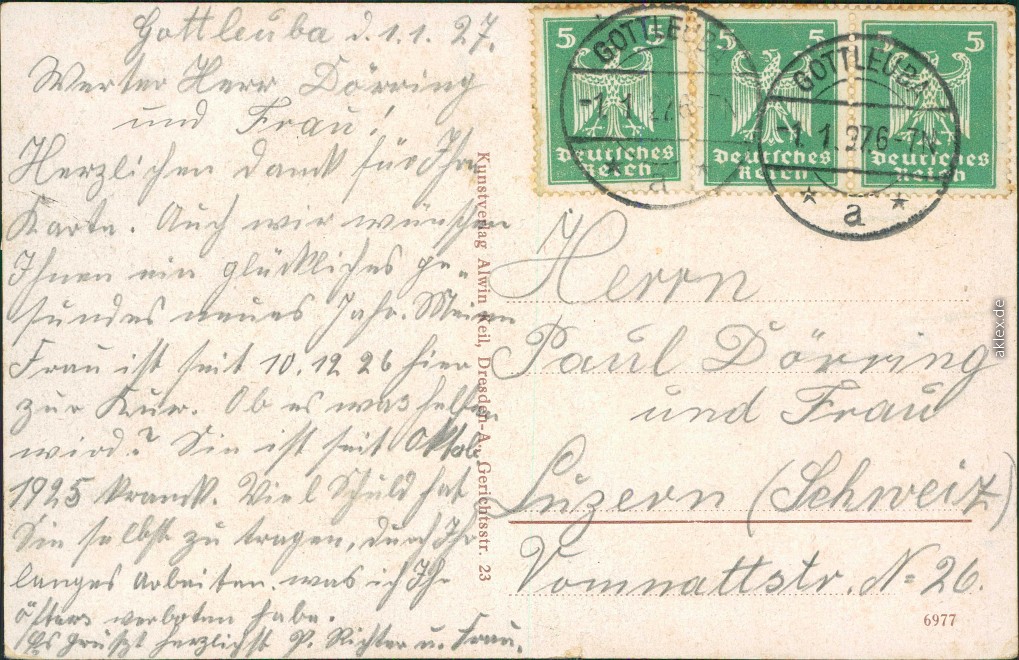 Gottleuba d. 1.1.27.
Werter Herr Dörring
und Frau!
Herzlichen Dank für Ihre
Karte. Auch wir wünschen
Ihnen ein glückliches ge-
sundes neues Jahr. Meine
Frau ist seit 10.12.26 hier
zur Kur. Ob es was helfen
wird? Sie ist seit Oktob.
1925 krank. Viel Schuld hat
Sie selbst zu tragen, durch Ihr
langes Arbeiten. was ich Ihr
öfters verboten habe.
Es grüßt herzlichst P. Richter u. Frau.
Kunstverlag Alwin Keil, Dresden-A., Gerichtsstr. 23
5 5
Deutsches
Reich
5 5
Deutsches
Reich
5 5
Deutsches
Reich
GOTTLEUBA
-1.1.27 6-7N
a
GOTTLEUBA
-1.1.27 6-7N
a
Herrn
Paul Dörring
und Frau
Luzern (Schweiz)
Vonmattstr. № 26.
6977
aklex.de